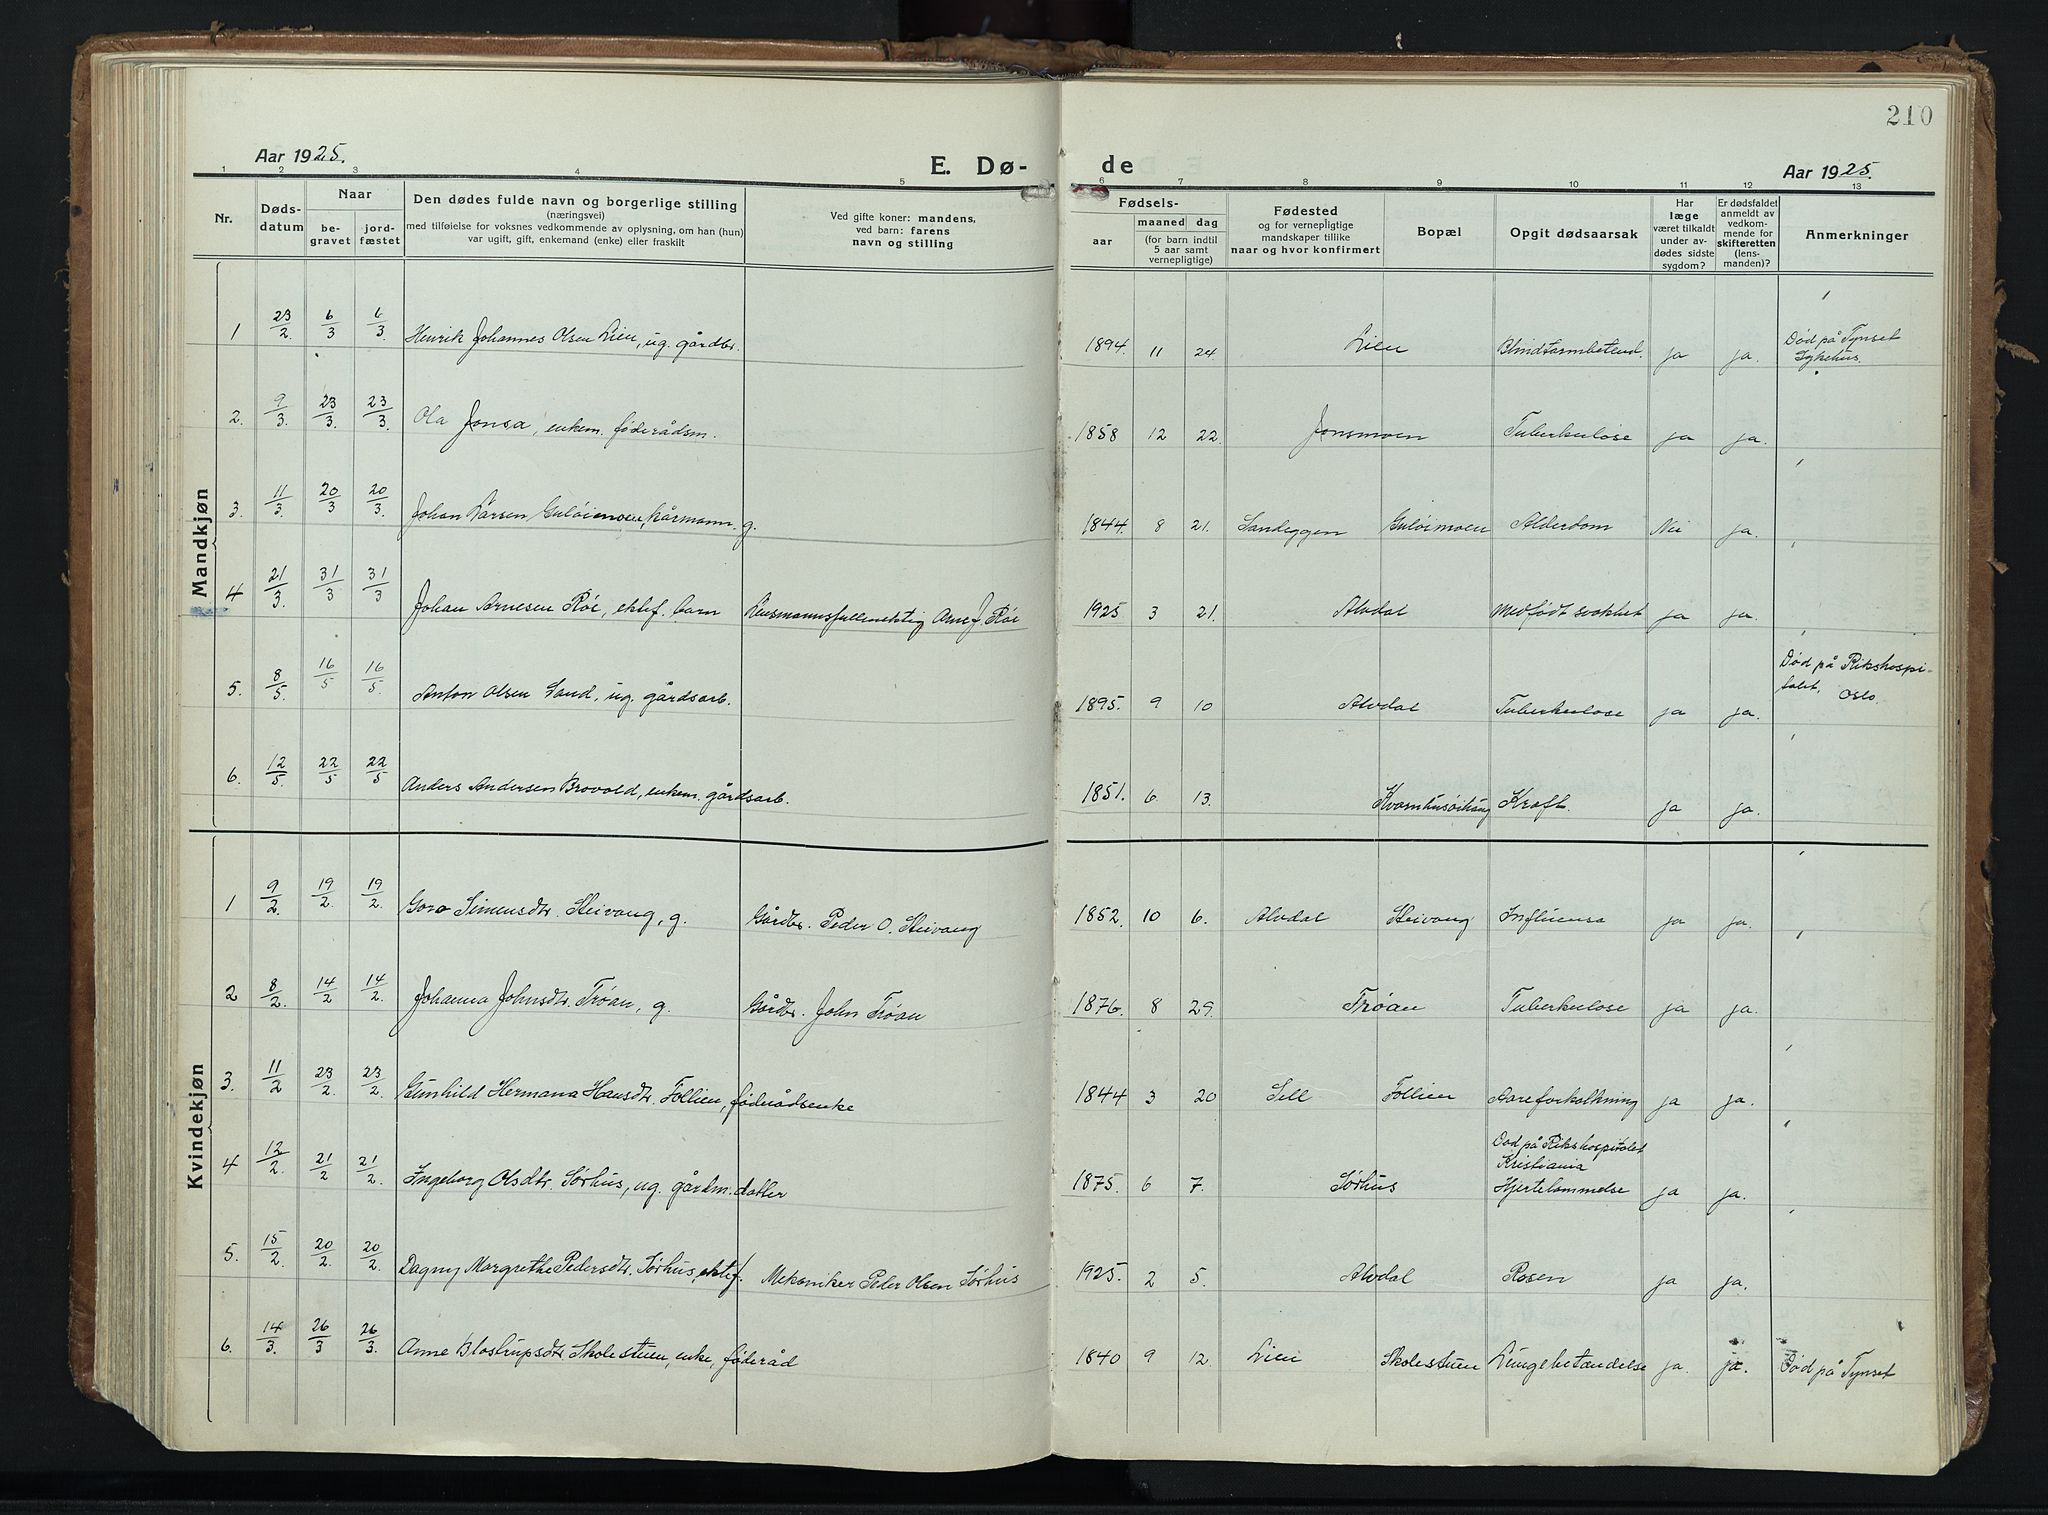 210
Aar 1925.
E. Dø-
de
Aar 1925.
1 2 3 4 5 6 7 8 9 10 11 12 13
Nr.
Døds-
datum
Naar
be-
gravet
jord-
fæstet
Den dødes fulde navn og borgerlige stilling
(næringsvei)
med tilføielse for voksnes vedkommende av oplysning, om han (hun)
var ugift, gift, enkemand (enke) eller fraskilt
Ved gifte koner: mandens,
ved barn: farens
navn og stilling
Fødsels-
aar
maaned
dag
(for barn indtil
5 aar samt
vernepligtige)
Fødested
og for vernepligtige
mandskaper tillike
naar og hvor konfirmert
Bopæl
Opgit dødsaarsak
Har
læge
været tilkaldt
under av-
dødes sidste
sygdom?
Er dødsfaldet
anmeldt av
vedkom-
mende for
skifteretten
(lens-
manden)?
Anmerkninger
Mandkjøn
1 23/2 6/3 6/3 Henrik Johannes Olsen Lien, ug. gårdbr. 1894. 11 24 Lien Blindtarmbetend. ja ja. Død på Tynset
Sykehus.
2. 9/3. 23/3. 23/3. Ola Jonsa, enkem. føderådsm. 1858 12 22. Jonsmoen Tuberkuløse ja ja.
3. 11/3. 20/3. 20/3. Johan Larsen Guløimoen, kårmann. g. 1844 8 21. Sandeggen Guløimoen Alderdom Nei ja.
4 21/3. 31/3 31/3 Johan Arnesen Røe, ektef. barn Lensmannsfullmektig Arne J. Røe 1925 3 21. Alvdal Medfødt svakhet ja ja.
5. 8/5 16/5 16/5 Anton Olsen Sand, ug. gårdsarb. 1895. 9 10 Alvdal Tuberkulose ja ja. Død på Rikshospi-
talet, Oslo.
6. 12/5 22/5 22/5 Anders Andersen Brovold, enkem. gårdsarb. 1851. 6. 13. Kvornhusøihaug Kræft. ja ja.
Kvindekjøn
1 9/2. 19/2 19/2 Goro Simensdtr. Steivang, g. Gårdbr. Peder O. Steivang 1852. 10 6. Alvdal Steivang Influensa ja ja.
2 8/2. 14/2 14/2. Johanna Johnsdtr. Trøan, g. Gårdbr. John Trøan 1876. 8 29. Trøan Tuberkuløse ja ja.
3. 11/2 23/2. 23/2. Gunhild Hermana Hansdtr. Follien, føderådsenke 1844 3 20 Sell Follien Aareforkalkning ja ja.
4 12/2. 21/2 21/2. Ingeborg Olsdtr. Sørhus, ug. gårdm. datter 1875. 6 7. Sørhus Død på Rikshospitalet
Kristiania
Hjertelammelse ja ja.
5. 15/2. 20/2. 20/2. Dagny Margrethe Pedersdtr. Sørhus, ektef. Mekaniker Peder Olsen Sørhus 1925. 2 5. Alvdal Rosen ja ja.
6. 14/3. 26/3 26/3. Anne Blostrupsdtr. Skolestuen, enke, føderåd 1840 9 12. Lien Skolestuen Lungebetændelse ja. ja. Død på Tynset